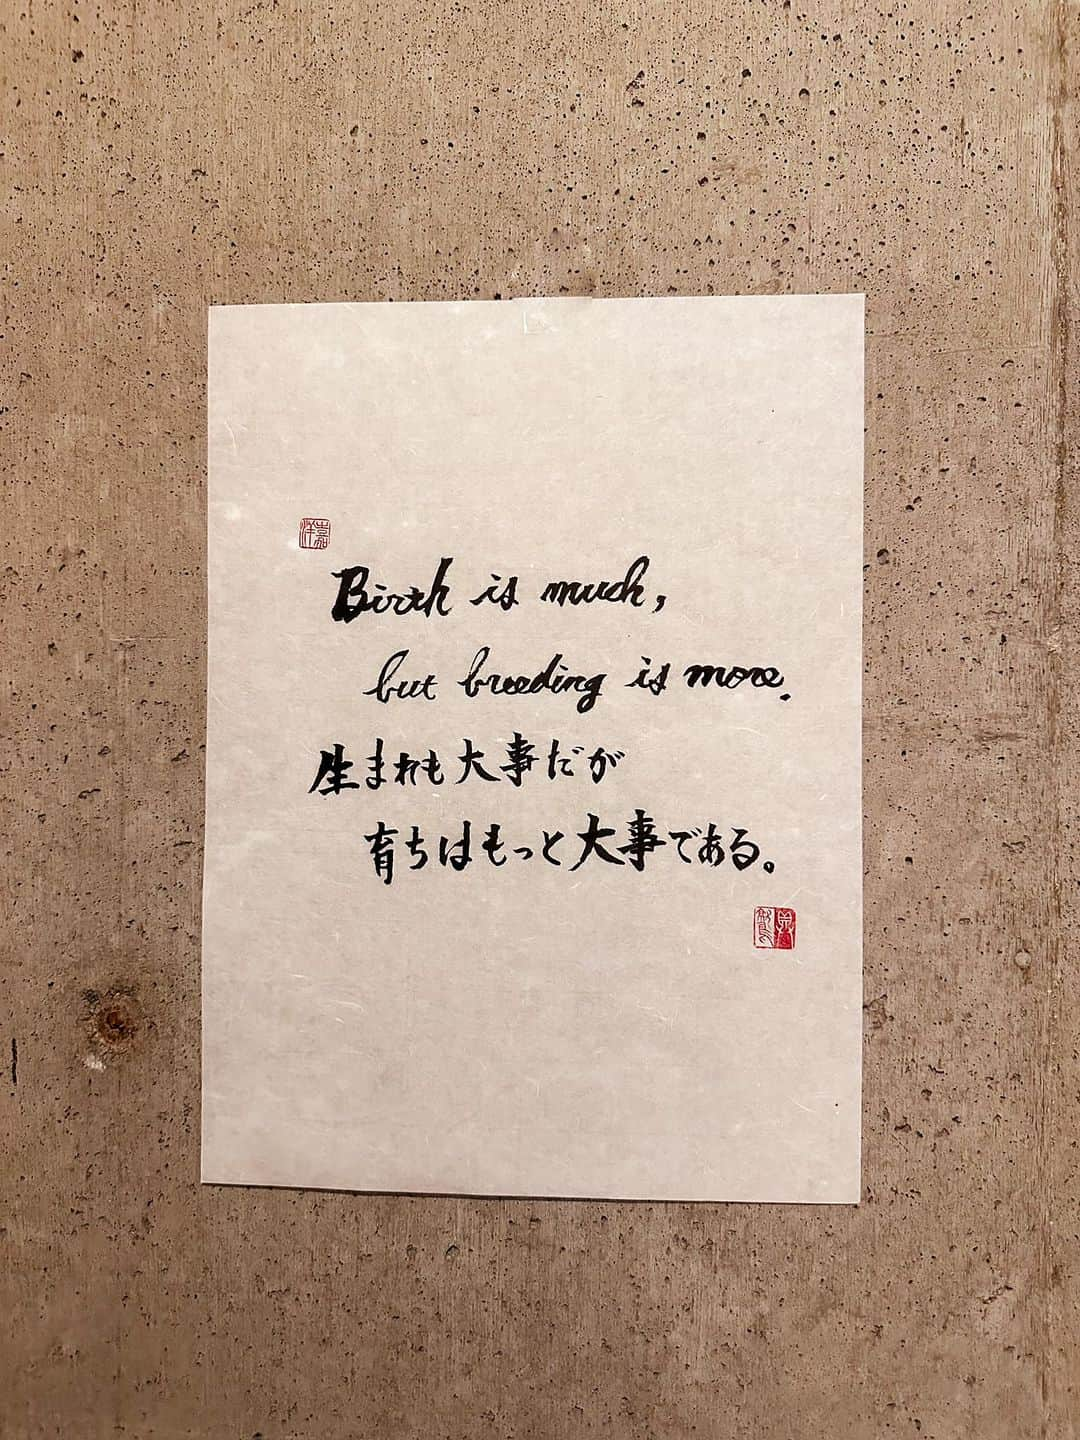 Birth is much,
but breeding is more.
生まれも大事だが
育ちはもっと大事である。